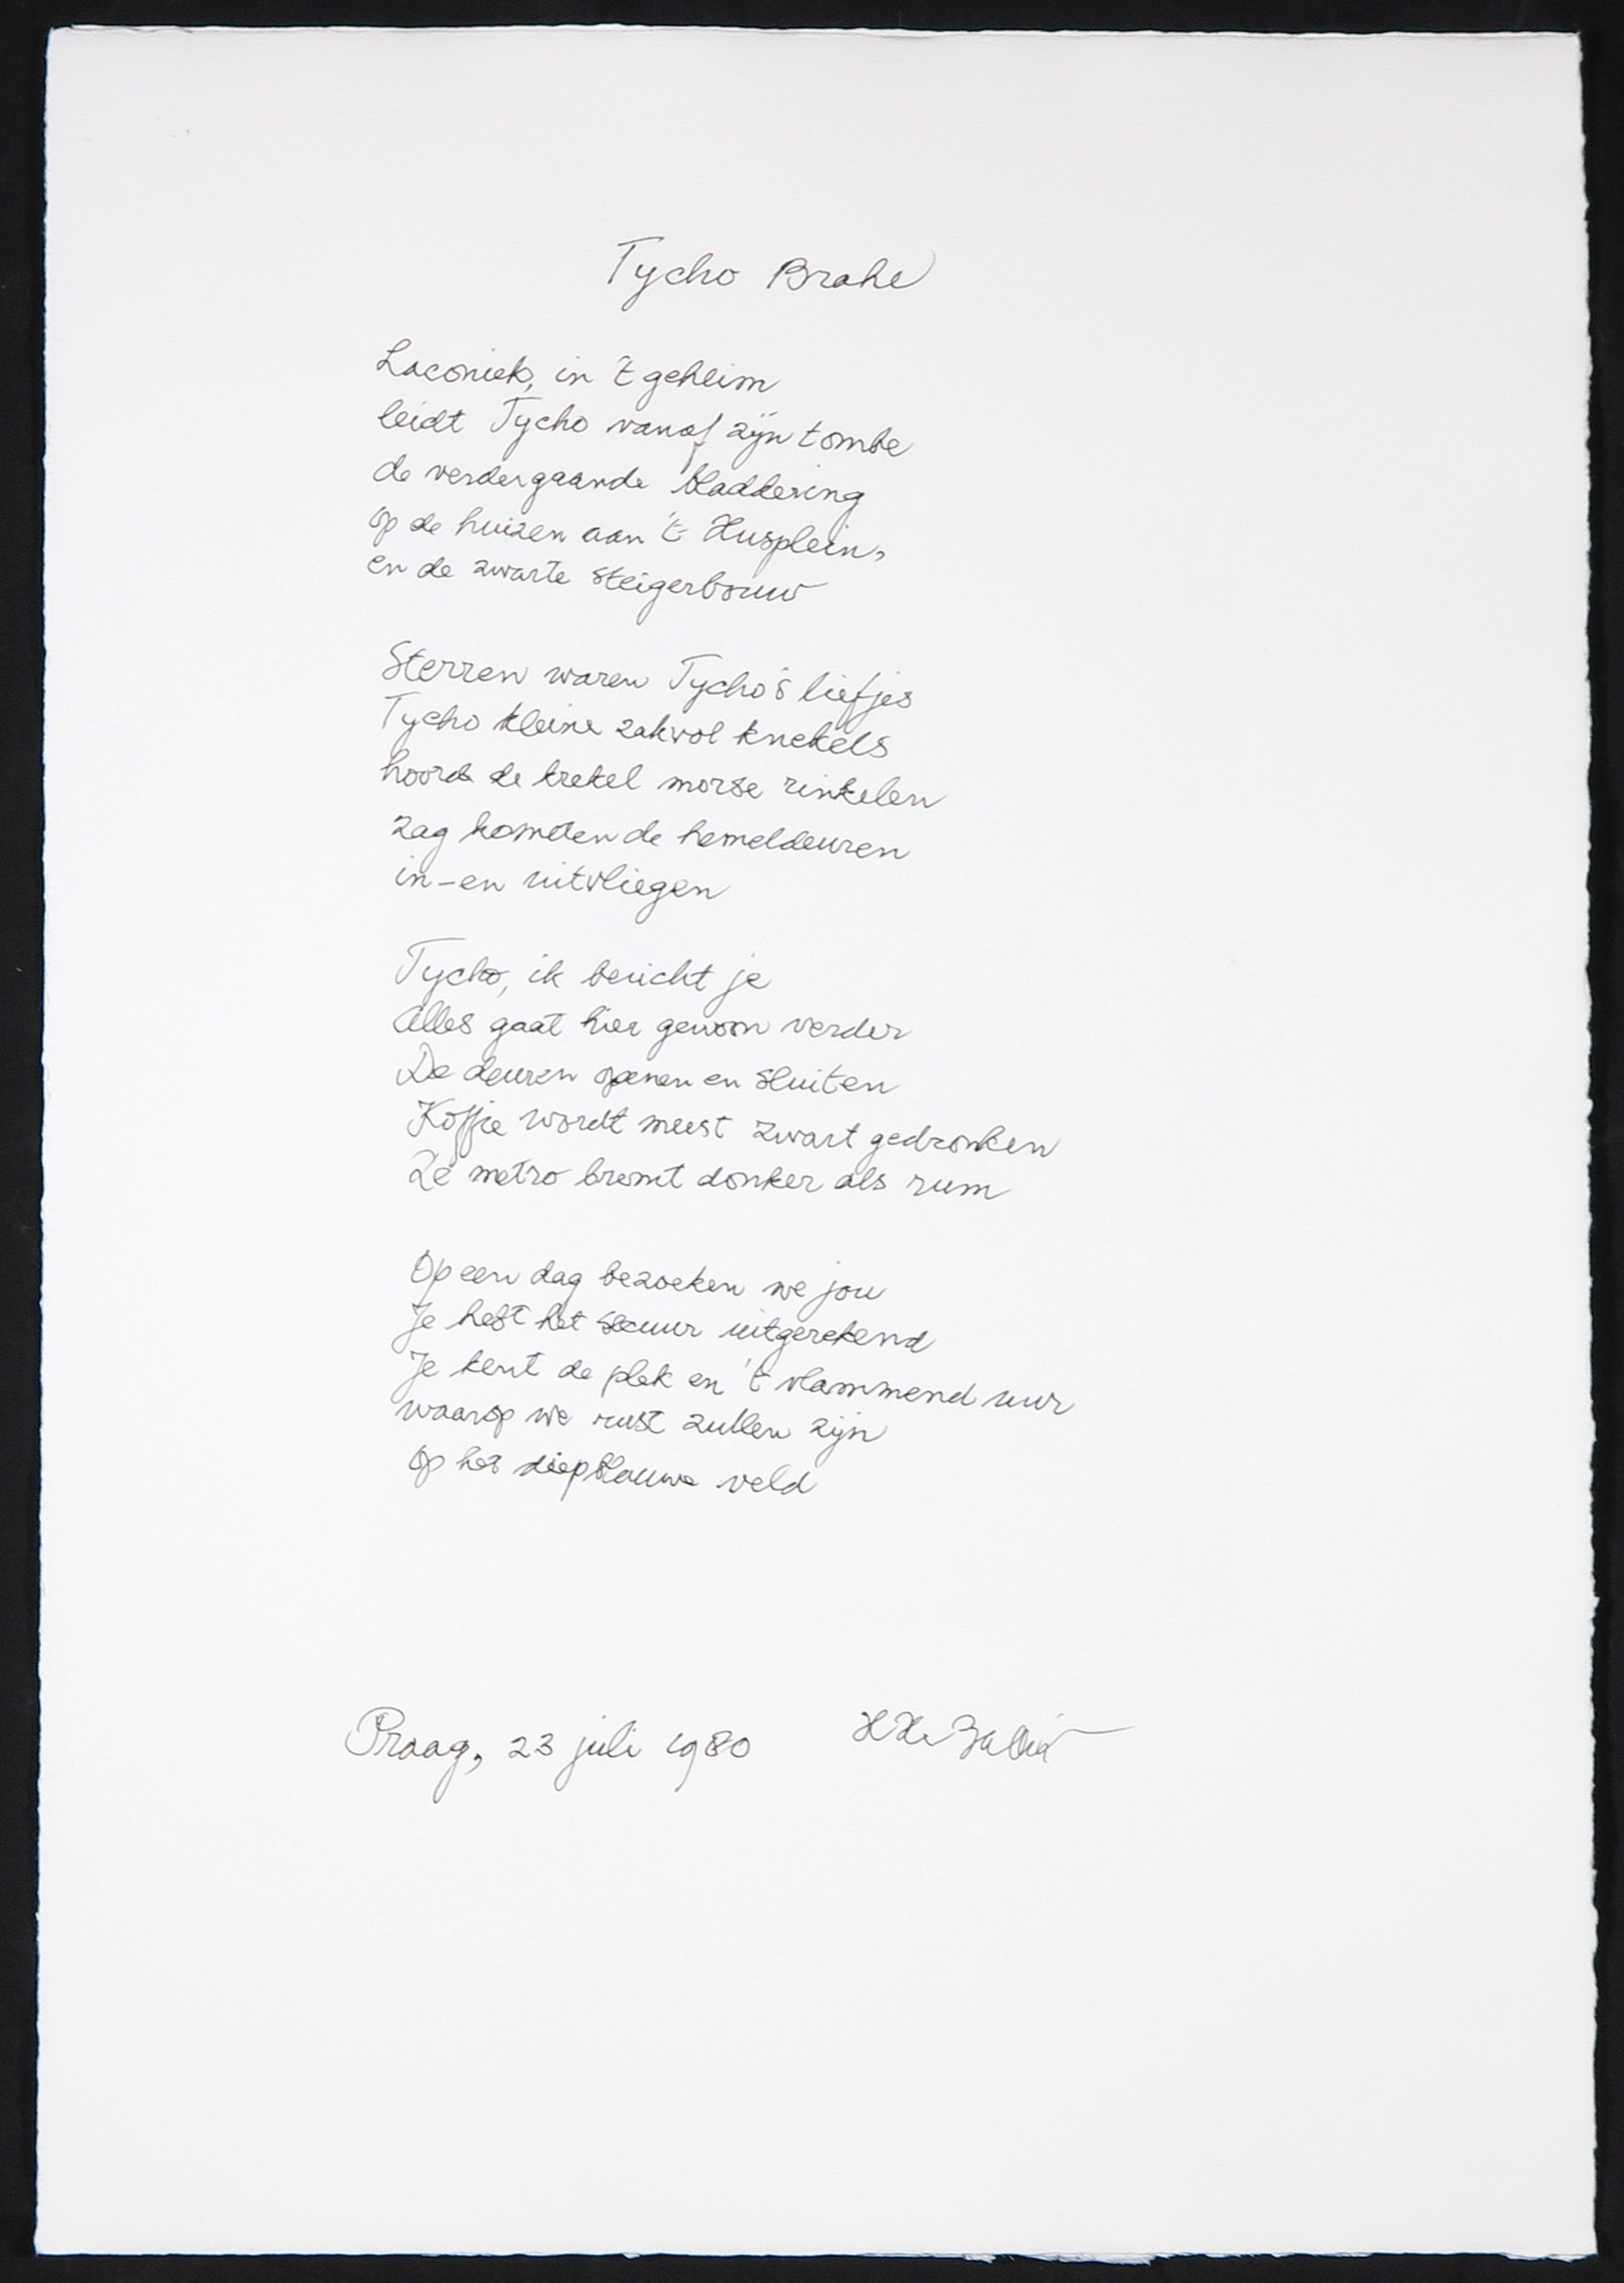 Tycho Brahe
Laconiek, in 't geheim
leidt Tycho vanaf zijn tombe
de verdergaande bladdering
op de huizen aan 't Husplein,
en de zwarte steigerbouw
Sterren waren Tycho's liefjes
Tycho kleine zakvol knekels
hoorde de krekel morse rinkelen
zag kometen de hemeldeuren
in-en uitvliegen
Tycho, ik bericht je
Alles gaat hier gewoon verder
De deuren openen en sluiten
Koffie wordt meest zwart gedronken
De metro bromt donker als rum
Op een dag bezoeken we jou
Je hebt het secuur uitgerekend
Je kent de plek en 't vlammend uur
waarop we rust zullen zijn
op het diepblauwe veld
Praag, 23 juli 1980